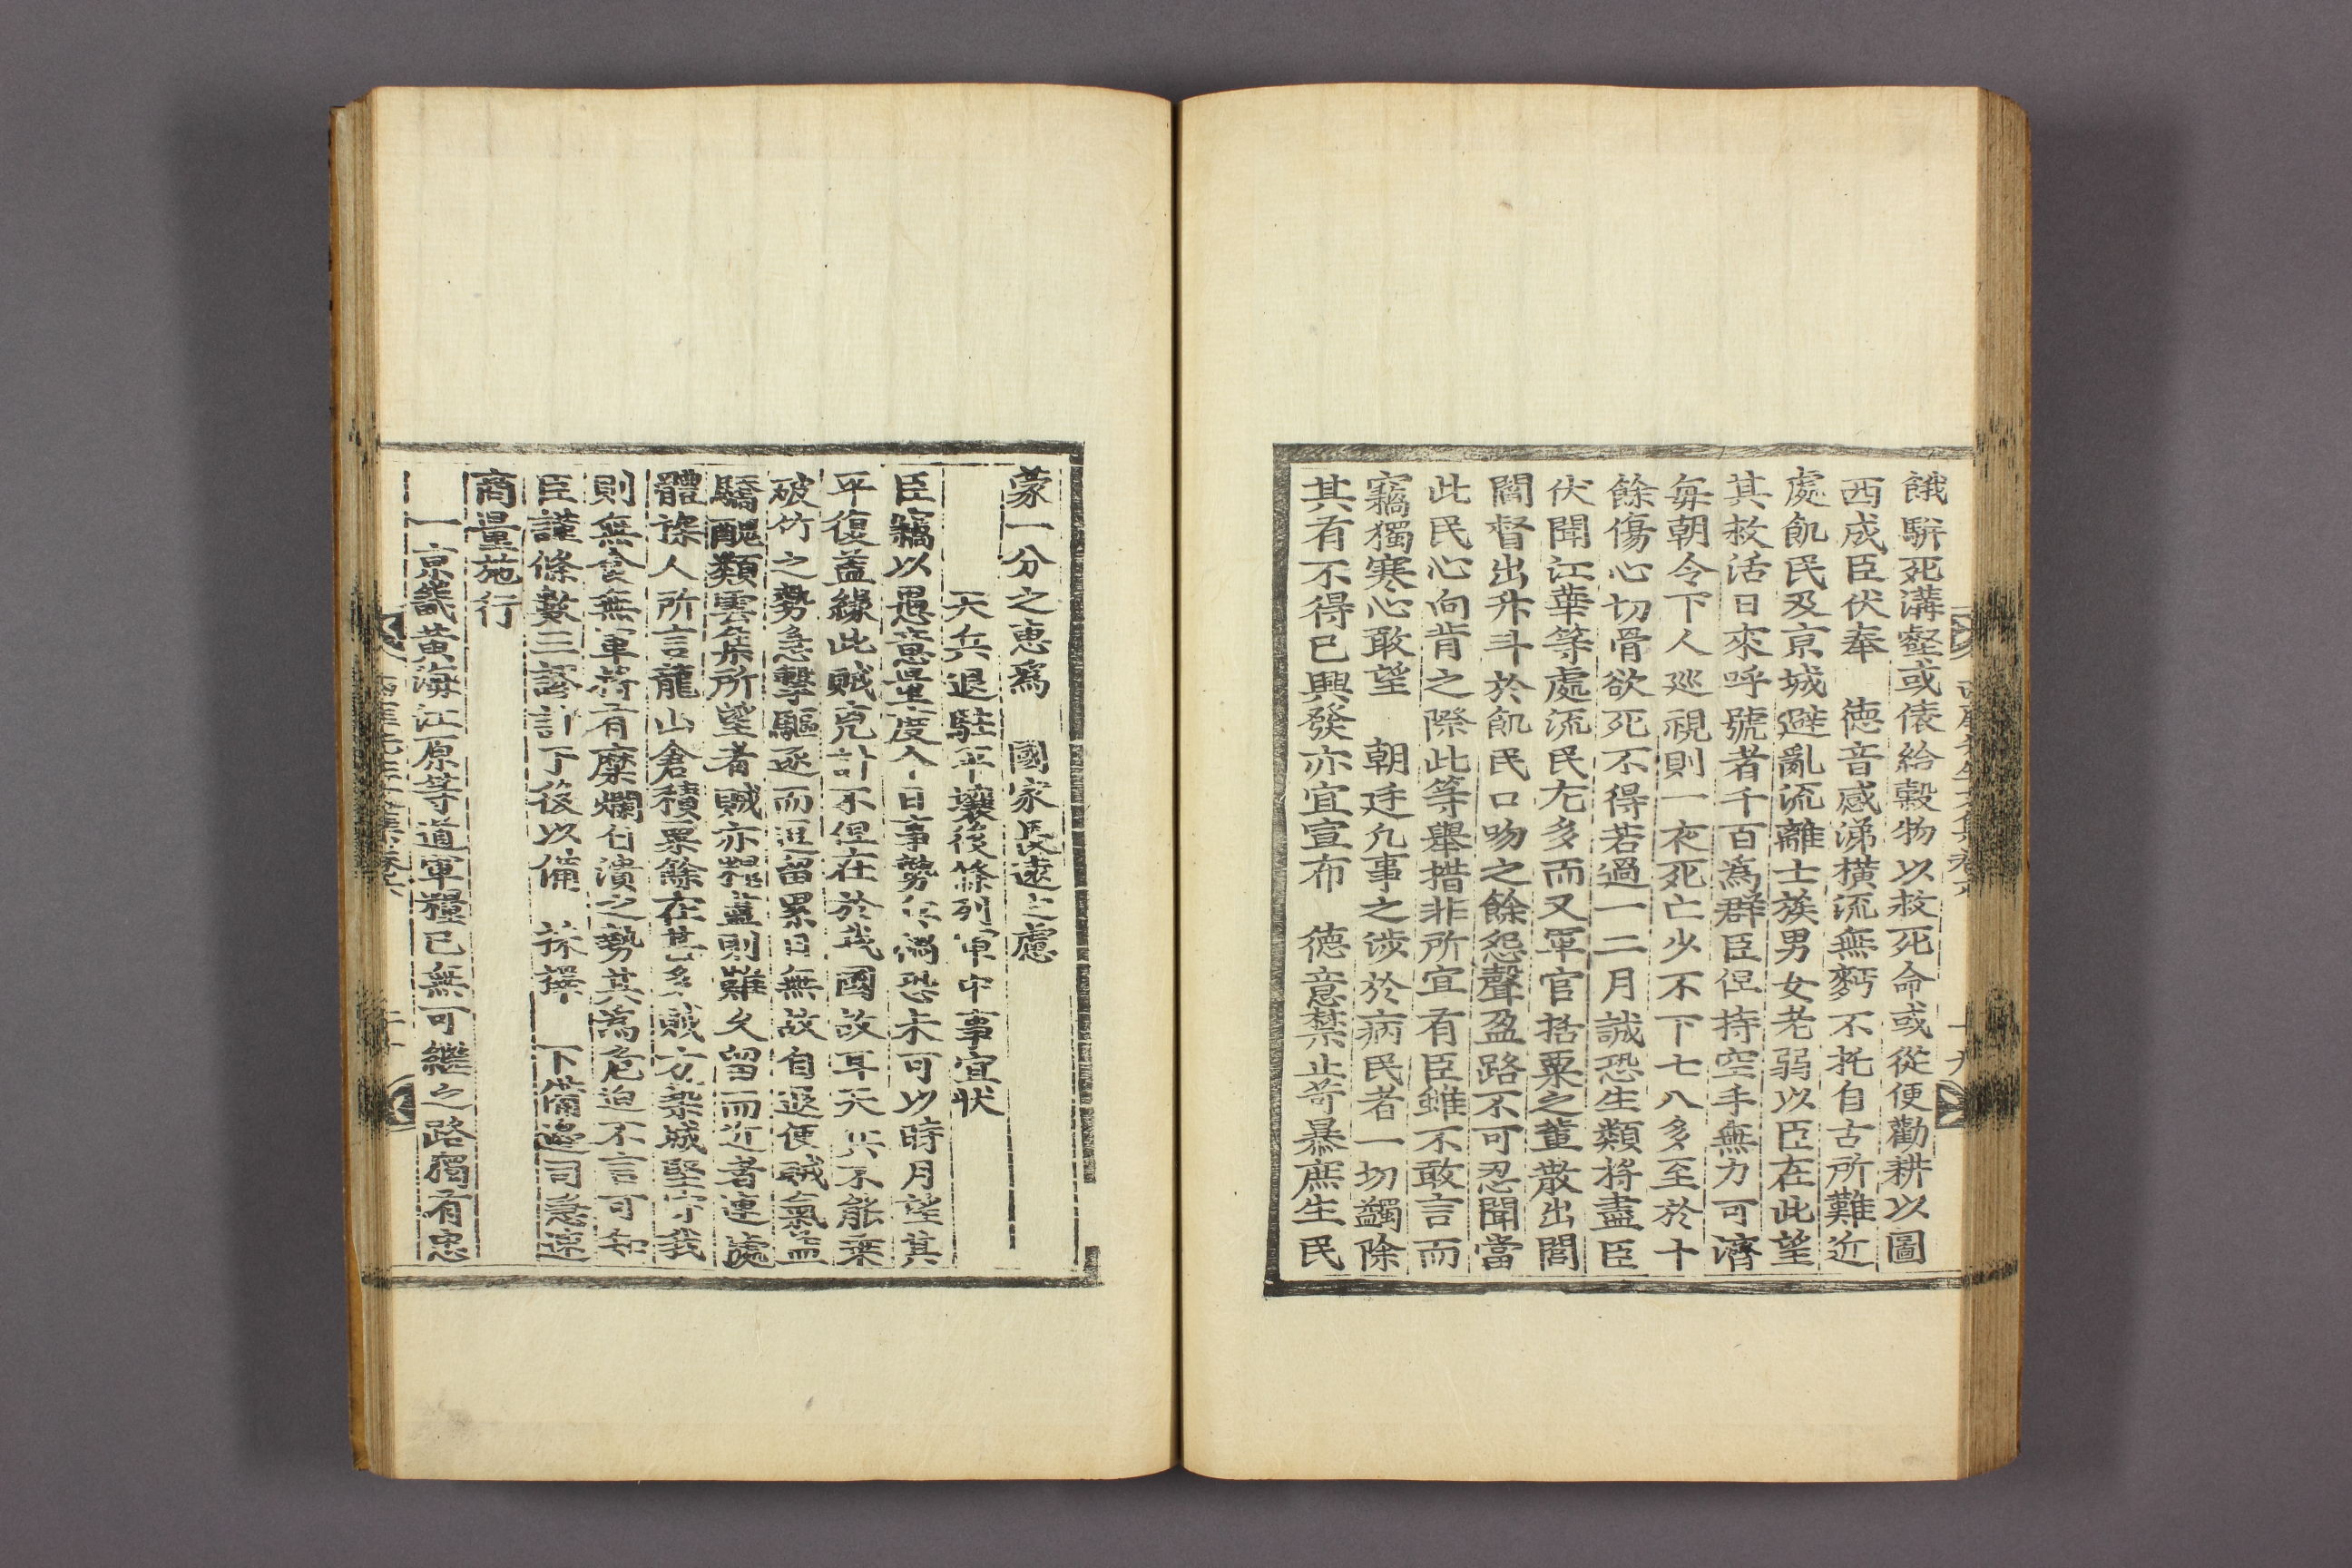 餓騈死溝壑或俵給穀物以救死命或從便勸耕以圖
西成臣伏奉　德音感涕橫流無麪不托自古所難近
處飢民及京城避亂流離士族男女老弱以臣在此望
其救活日來呼號者千百爲群臣但持空手無力可濟
每朝令下人巡視則一夜死亡少不下七八多至於十
餘傷心切骨欲死不得若過一二月誠恐生類將盡臣
伏聞江華等處流民尤多而又軍官括粟之輩散出閭
閻督出升斗於飢民口吻之餘怨聲盈路不可忍聞當
此民心向背之際此等舉措非所宜有臣雖不敢言而
竊獨寒心敢望　朝廷凡事之涉於病民者一切蠲除
其有不得已興發亦宜宣布　德意禁止苛暴庶生民
西厓先生文集卷六　十九
蒙一分之惠爲　國家民遠之慮
天兵退駐平壤後條列軍中事宜狀
臣竊以愚意量度今日事勢恐未可以時月望其
平復盖緣此賊兇計不但在於我國故耳天兵不能乘
破竹之勢急擊驅逐而逗留累日無故自退使賊氣益
驕醜類雲集所望者賊亦糧盡則雖久留而近者連處
體探人所言龍山倉積粟餘在甚多賊方築城堅守我
則無食無軍將有糜爛自潰之勢其爲危迫不言可知
臣謹條數三謬計于後以備　採擇　下備邊司急速
商量施行
一京畿黃海江原等道軍糧已無可繼之路獨有忠
西厓先生文集卷六